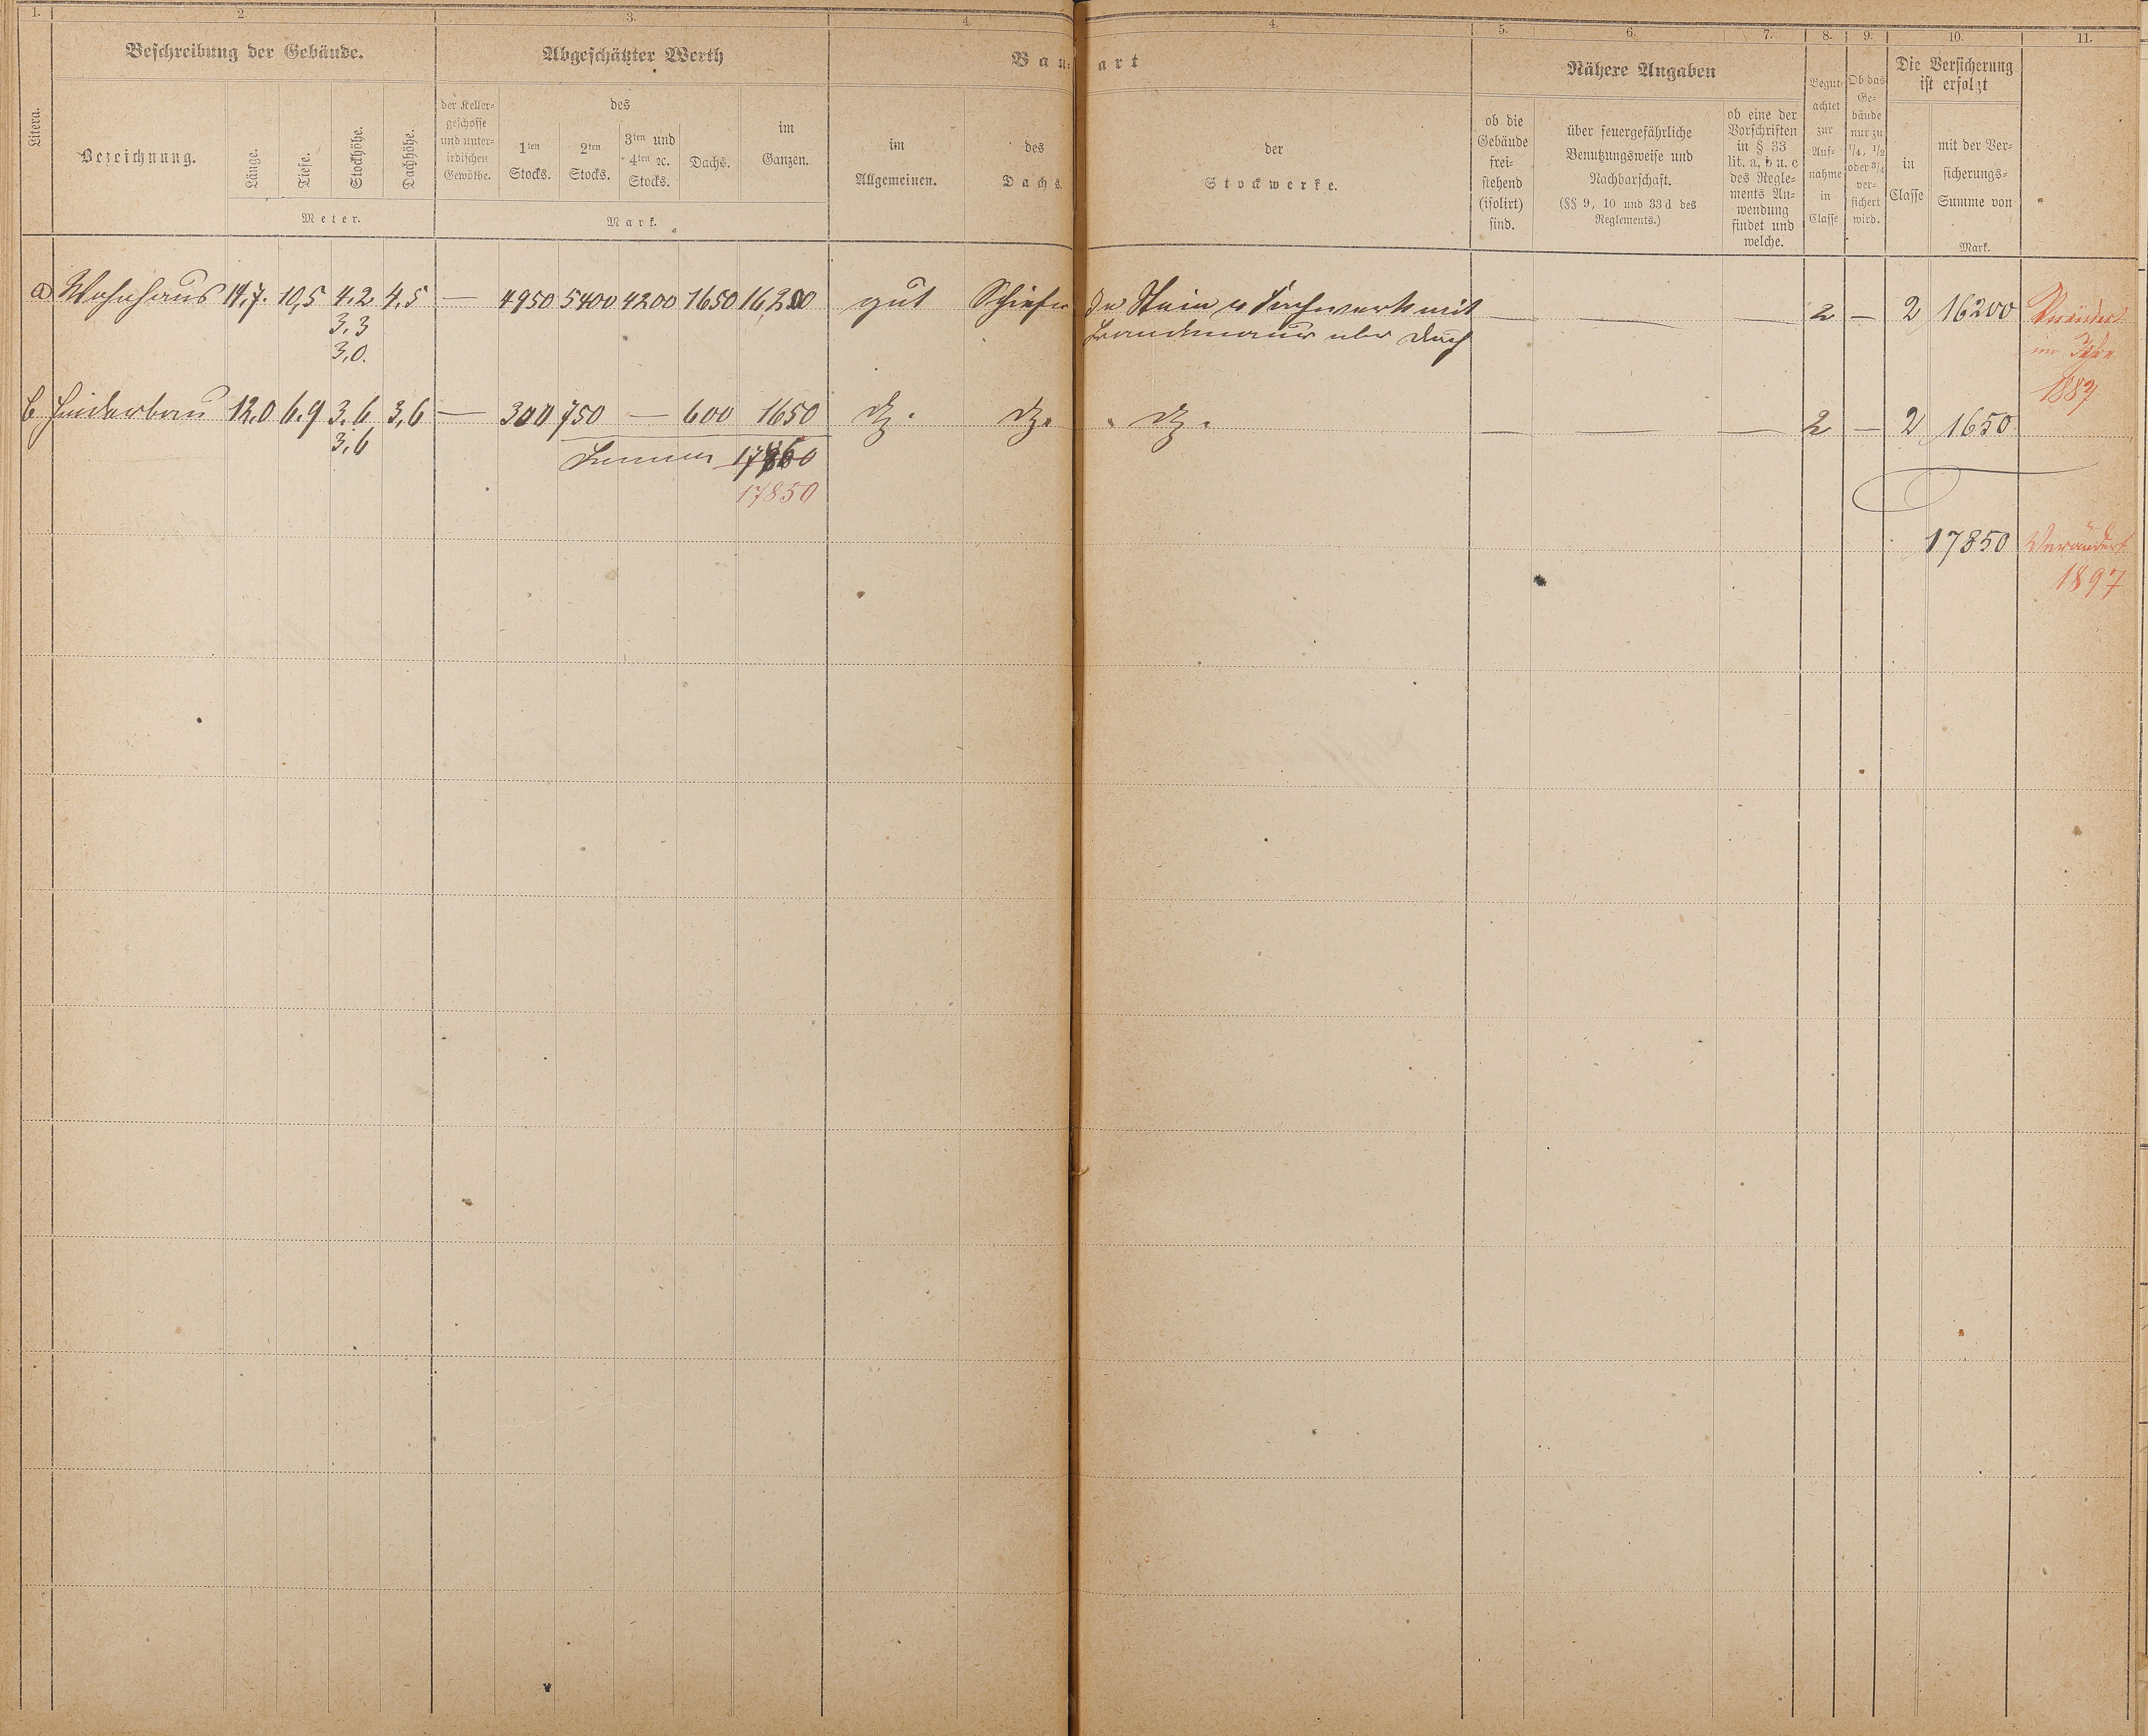 1. 2. 3. 4. 4. 5. 6. 7. 8. 9. 10. 11.
Litera.
Beschreibung der Gebäude.
Bezeichnung.
Länge.
Tiefe.
Stockhöhe.
Dachhöhe.
Meter.
Abgeschätzter Werth
der Keller-
geschosse
und unter-
irdischen
Gewölbe.
des
1ten
Stocks.
2ten
Stocks.
3ten und
4ten ec.
Stocks.
Dachs.
im
Ganzen.
Mark.
Bau-art
im
Allgemeinen.
des
Dachs.
der
Stockwerke.
Nähere Angaben
ob die
Gebäude
frei-
stehend
(isolirt)
sind.
über feuergefährliche
Benutzungsweise und
Nachbarschaft.
(§§ 9, 10 und 33 d des
Reglements.)
ob eine der
Vorschriften
in § 33
lit. a, b u. c
des Regle-
ments An-
wendung
findet und
welche.
Begut-
achtet
zur
Auf-
nahme
in
Classe
Ob das
Ge-
bäude
nur zu
1/4, 1/2
oder 3/4
ver-
sichert
wird.
Die Versicherung
ist erfolgt
in
Classe
mit der Ver-
sicherungs-
Summe von
Mark.
a Wohnhaus 14.7. 10,5 4.2 4.5 — 4950 5400 4200 1650 16200 gut Schiefer In Stein u Fachwerk mit — — — 2 — 2 16200 Verändert
3.3 Brandmauer über Dach im Jahre
3,0. 1887
b Hinterbau 12.0 6.9 3.6 3,6 — 300 750 — 600 1650 do. do. do. — — — 2 — 2 1650
3,6
Summa 17860
17850
17850 Verändert
1897